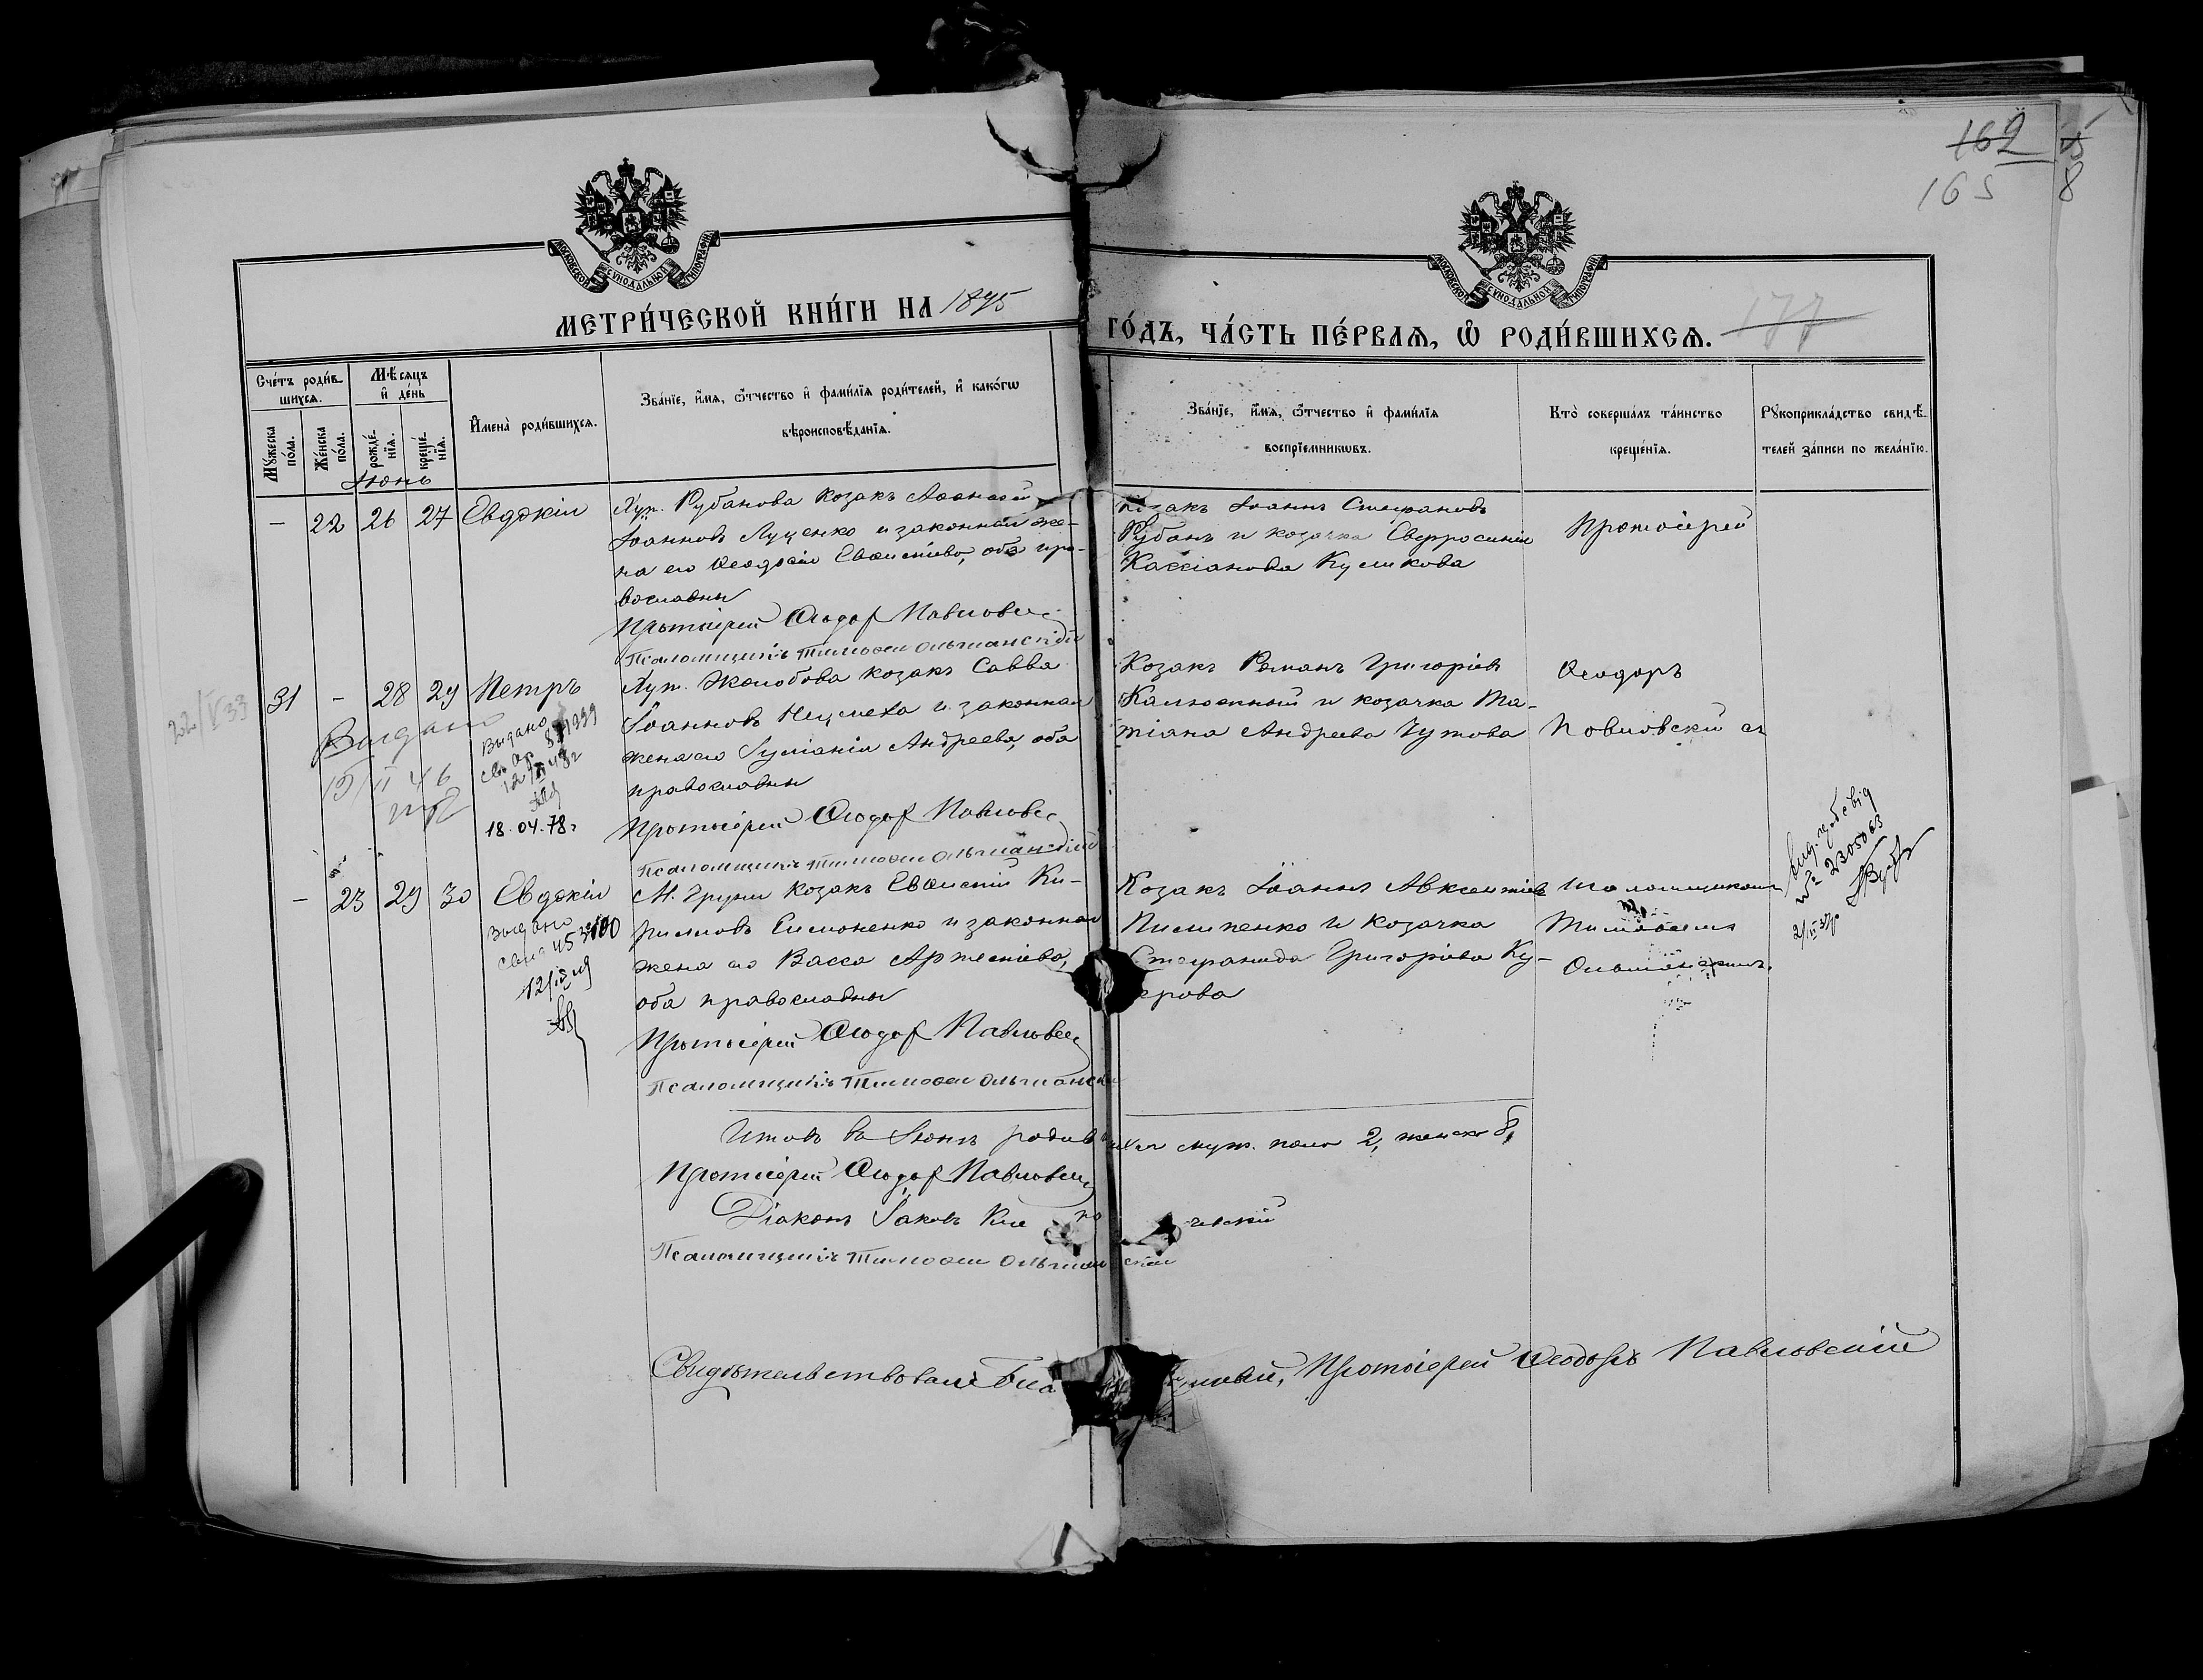 162
165
8
МОСКОВСКОЙ СѴНОДАЛЬНОЙ ТИПОГРАФІИ
МОСКОВСКОЙ СѴНОДАЛЬНОЙ ТИПОГРАФІИ
МЕТРИ́ЧЕСКОЙ КНИ́ГИ НА 1895
ГО́ДЪ, ЧА́СТЬ ПЕ́РВАѦ, Ѡ҆ РОДИ́ВШИХСѦ.
177
Сче́тъ роди́в-
шихсѧ.
Мꙋ́жеска по́ла.
Же́нска по́ла.
Мѣ́сѧцъ и҆ де́нь
рожде́-нїѧ.
креще́-нїѧ.
И҆мена̀ роди́вшихсѧ.
Зва́нїе, и҆́мѧ, ѻ҆́тчество и҆ фами́лїѧ роди́телей, и҆ како́гѡ
вѣроисповѣ́данїѧ.
Зва́нїе, и҆́мѧ, ѻ҆́тчество и҆ фами́лїѧ
воспрїе́мникѡвъ.
Кто̀ соверша́лъ та́инство
креще́нїѧ.
Рꙋкоприкла́дство свидѣ́-
телей за́писи по жела́нїю.
Іюнь
— 22 26 27 Евдокія
Хут. Рубанова козакъ Аѳанасій
Іоанновъ Луценко и законная же-
на его Ѳеодосія Евсигнѣева, оба пра-
вославны
Протоіерей Ѳеодор Павловск
Псаломщикъ Тимоѳей Ольшанскій
козакъ Іоаннъ Стефановъ
Рубанъ и козачка Евфросинія
Кассіанова Куликова
Протоіерей
31 — 28 29 Петръ
Хут. Жолобова козакъ Савва
Іоанновъ и законная
жена его Іуліанія Андреева, оба
православны
Протоіерей Ѳеодор Павловс
Псаломщикъ Тимоѳей Ольшанскій
Козакъ Романъ Григоріев
и козачка Та-
тіана Андреева Чутова
Ѳеодоръ
Павловскій съ
22/V 33
Выдано
Выдано
18.04.78г
— 23 29 30 Евдокія
М. Груни козакъ Ки-
рилловъ Симоненко и законная
жена его Васса Артемьева,
оба православны
Протоіерей Ѳеодор Павловск
Псаломщикъ Тимоѳей Ольшанскі
Козакъ Іоаннъ Авксентіев
Пилипенко и козачка
Стефанида Григоріева Ку-
черова
псаломщикомъ
Тимоѳеемъ
Ольшанскимъ.
Выдано
№ 2305063
Итого въ Іюнѣ родившихся муж. пола 2, женска 8,
Протоіерей Ѳеодор Павловск
Діаконъ Іаковъ
Псаломщикъ Тимоѳей Ольшанскій
Свидѣтельствовалъ Протоіерей Ѳеодоръ Павловскій